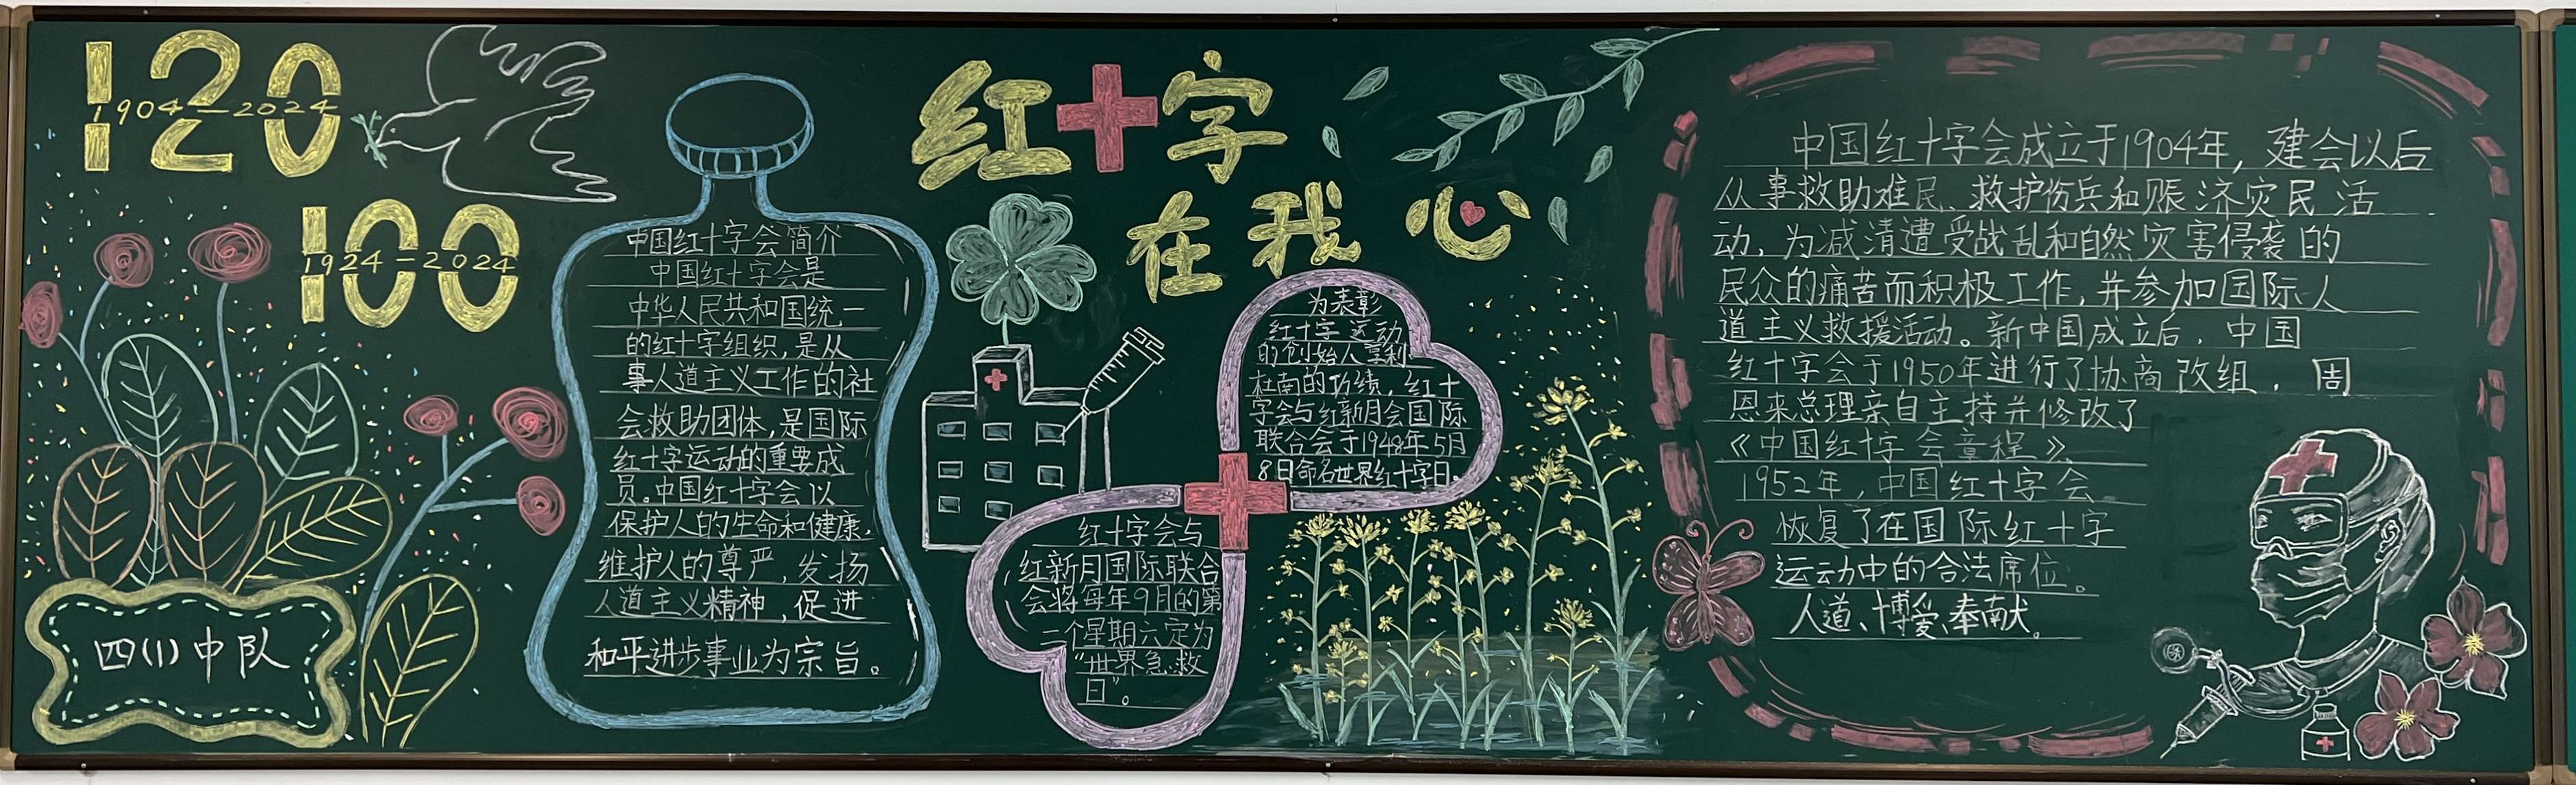 120
1904—2024
100
1924-2024
四(1)中队
中国红十字会简介
中国红十字会是
中华人民共和国统一
的红十字组织,是从
事人道主义工作的社
会救助团体,是国际
红十字运动的重要成
员。中国红十字会以
保护人的生命和健康,
维护人的尊严,发扬
人道主义精神,促进
和平进步事业为宗旨。
红十字
在我心
为表彰
红十字运动
的创始人亨利
杜南的功绩,红十
字会与红新月会国际
联合会于1948年5月
8日命名世界红十字日。
红十字会与
红新月国际联合
会将每年9月的第
二个星期六定为
“世界急救
日”。
中国红十字会成立于1904年,建会以后
从事救助难民、救护伤兵和赈济灾民活
动,为减清遭受战乱和自然灾害侵袭的
民众的痛苦而积极工作,并参加国际人
道主义救援活动。新中国成立后,中国
红十字会于1950年进行了协商改组,周
恩来总理亲自主持并修改了
《中国红十字会章程》。
1952年,中国红十字会
恢复了在国际红十字
运动中的合法席位。
人道、博爱、奉献。